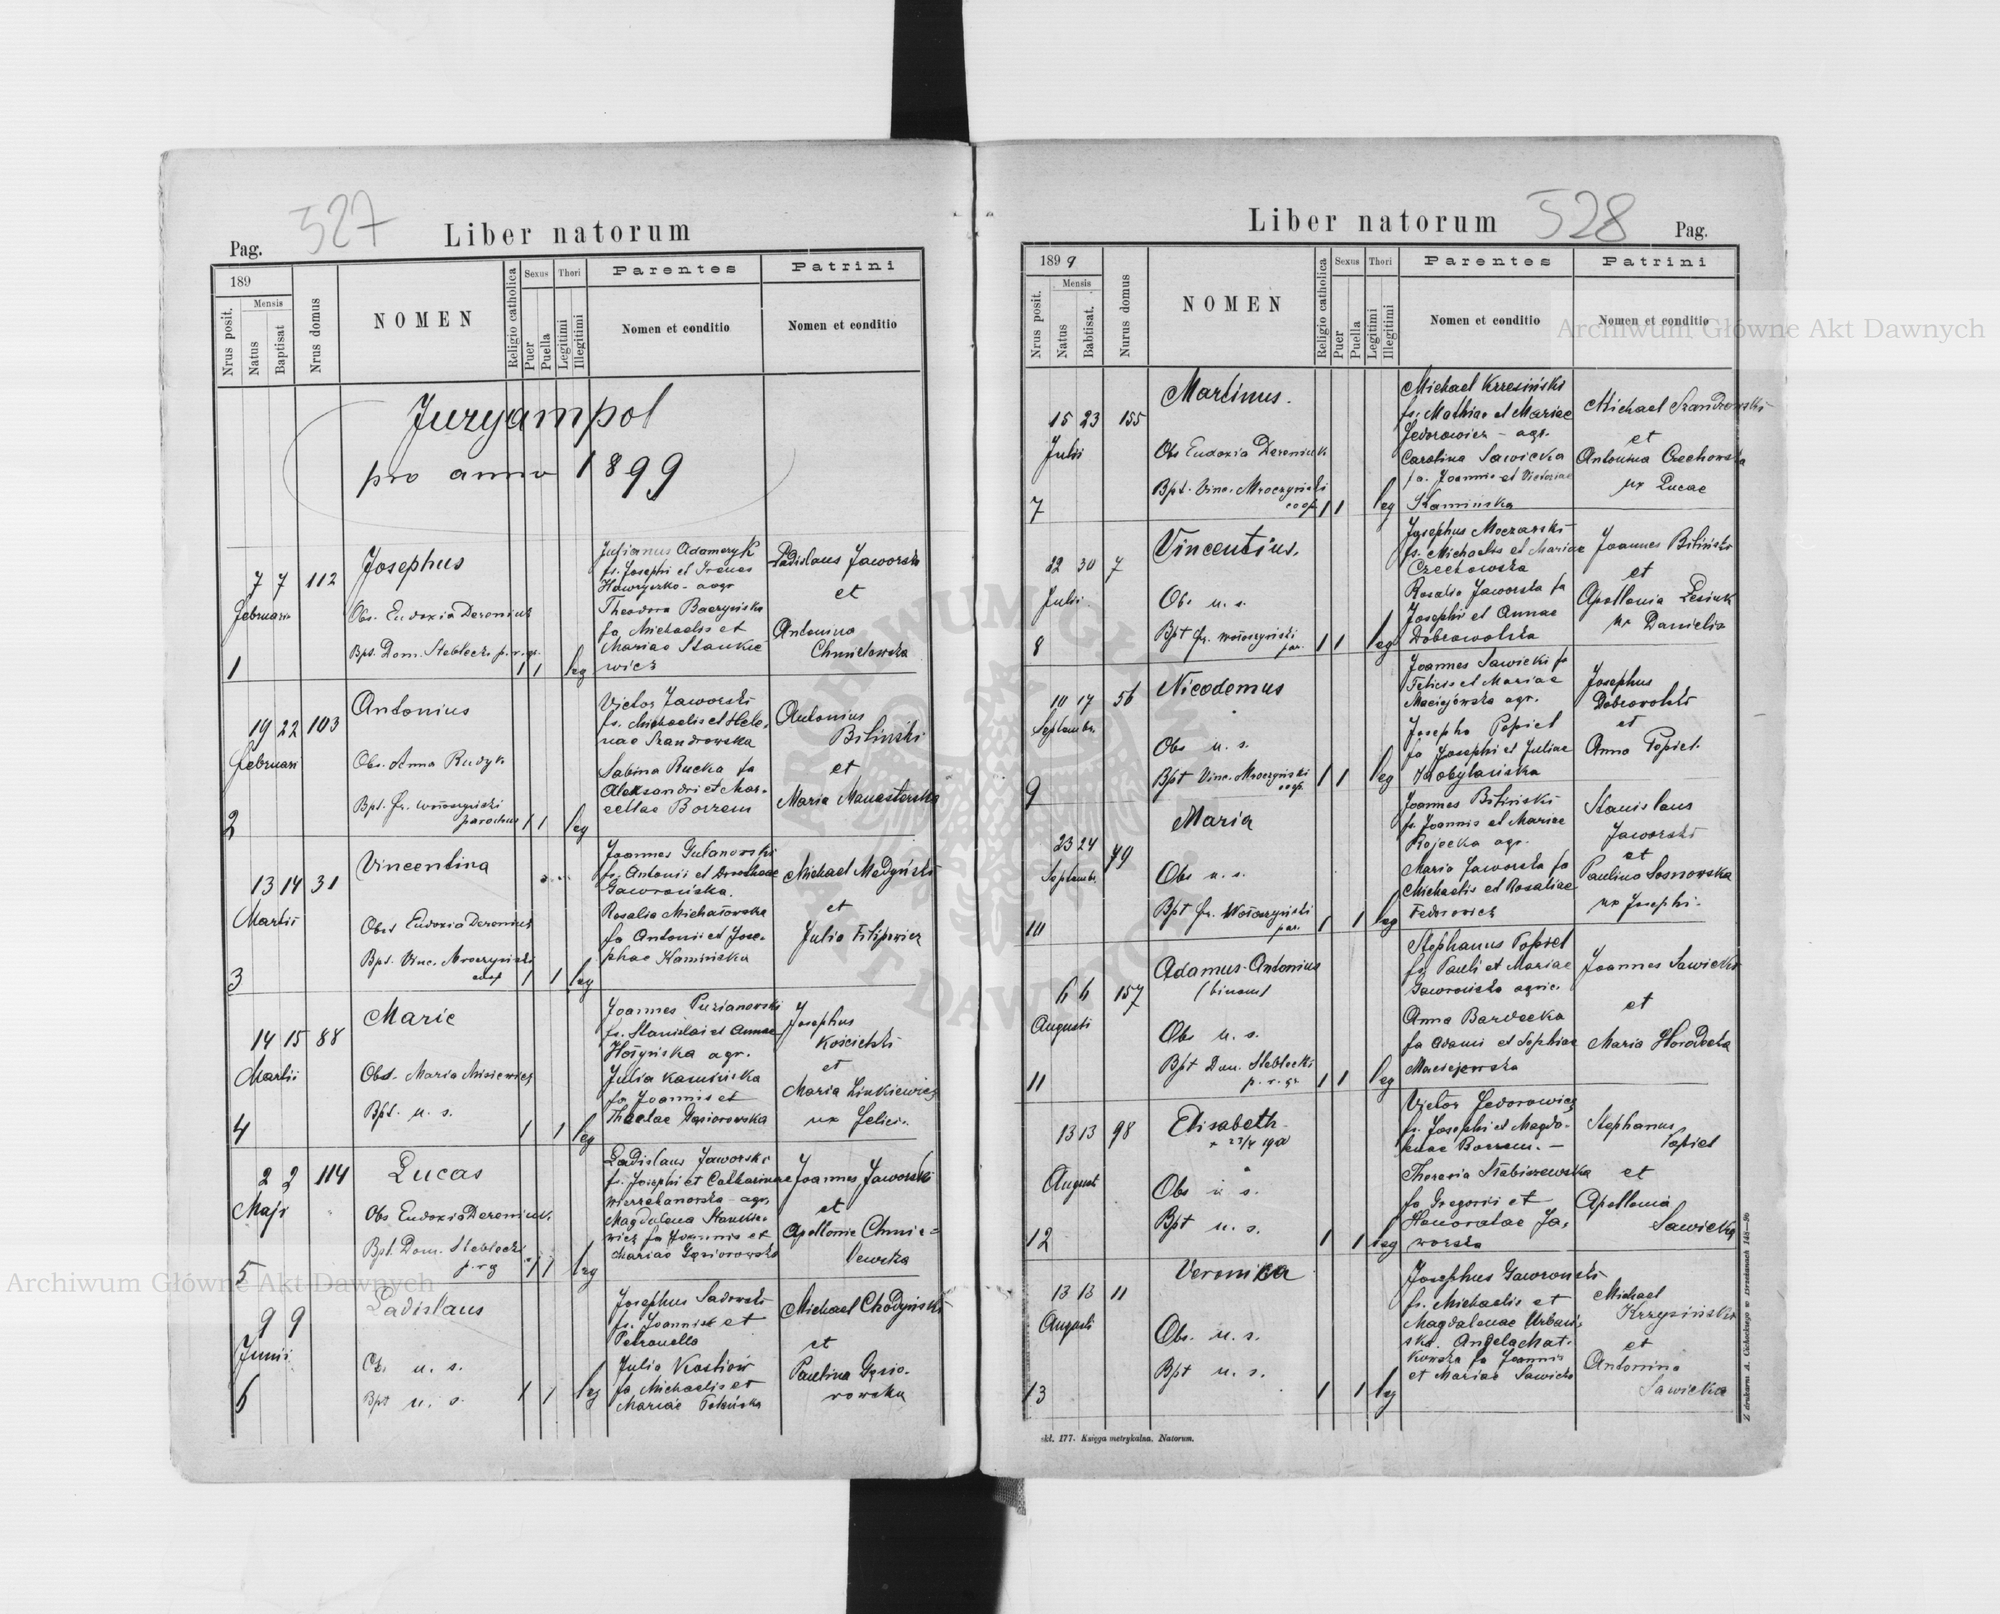 327
Liber natorum
Pag.
189
Nrus posit.
Mensis
Natus
Baptisat
Nrus domus
NOMEN
Religio catholica
Sexus
Puer
Puella
Thori
Legitimi
Illegitimi
Parentes
Nomen et conditio
Patrini
Nomen et conditio
Juryampol
pro anno 1899
7 7 112
Februarii
1
Josephus
Obs. Eudoxia Deroniuk
Bpt. Dom. Steblecki p. r. gr.
1 1 leg
Julianus Adamczyk
fs. Josephi et Irenes
Hawryszko - agr
Theodora Baczyńska
fa Michaelis et
Mariae Stankie
wicz
Ladislaus Jaworski
et
Antonina
Chmielowska
19 22 103
Februari
2
Antonius
Obs. Anna Rudyk
Bpt. Fr. Wołoszyński
parochus
1 1 leg
Victor Jaworski
fs. Michaelis et Hele-
nae Szandrowska
Sabina Rucka fa
Aleksandri et Mar-
cellae Borzem
Antonius
Biliński
et
Maria Manasterska
13 14 31
Martii
3
Vincentina
Obst Eudoxia Deroniuk
Bpt. Vinc. Mroczyński
coop
1 1 leg
Joannes Gulanowski
fs. Antonii et
Gaworońska.
Rosalia Michałowska
fa Antonii et Jose-
phae Kamińska
Michael Medyński
et
Julia Filipowicz
14 15 88
Martii
4
Marie
Obst. Maria Misiewicz
Bpt. u. s.
1 1 leg
Joannes Puzianowski
fs. Stanislai et Annae
Hołyńska agr.
Julia Kamińska
fa Joannis et
Theclae Gąsiorowska
Josephus
Kościelski
et
Maria Linkiewicz
ux Felici.
2 2 114
Maji
5
Lucas
Obs. Eudoxia Deroniuk.
Bpt. Dom. Steblecki
p. r g
1 1 leg
Ladislaus Jaworski
fs. Josephi et Catharinae
Wierzchanowska - agr.
Magdalena Stankie-
wicz fa Joannis et
Mariae Gąsiorowska
Joannes Jaworski
et
Apollonie Chmie-
lewska
9 9
Junii
6
Ladislaus
Ob. u. s.
Bpt u. s.
1 1 leg
Josephus Sadowski
fs. Joannis et
Petronella
Julia Kostiów
fa Michaelis et
Mariae
Michael Chodyński
et
Paulina Gąsio-
rowska
Liber natorum
528
Pag.
1899
Nrus posit.
Mensis
Natus
Babtisat.
Nurus domus
NOMEN
Religio catholica
Sexus
Puer
Puella
Thori
Legitimi
Illegitimi
Parentes
Nomen et conditio
Patrini
Nomen et conditio
15 23 155
Julii
7
Martinus.
Obs Eudoxia Deroniuk
Bpt. Vinc. Mroczyński
coop.
1 1 leg
Michael Krzesiński
fs. Mathiae et Mariae
Fedorowicz - agr.
Carolina Sawicka
fa. Joannis et Victoriae
Kamińska
Michael Szandrowski
et
Antonina Czechowska
ux Lucae
22 30 7
Julii
8
Vincentius.
Obs u. s.
Bpt Fr. Wołoszyński
par.
1 1 leg
Josephus Moczarski
fs. Michaelis et Mariae
Czechowska
Rosalia Jaworska fa
Josephi et Annae
Dobrowolska
Joannes Biliński
et
Apollonia Lesiuk
ux Danielis
10 17 56
Septembr.
9
Nicodemus
Obs u. s.
Bpt Vinc. Mroczyński
coop.
1 1 leg
Joannes Sawicki fs
Felicis et Mariae
Maciejówska agr.
Josepha Popiel
fa Josephi et Juliae
Kobylańska
Josephus
Dobrowolski
et
Anna Popiel.
23 24 49
Septembr.
10
Maria
Obs u. s.
Bpt Fr. Wołoszyński
par.
1 1 leg
Joannes Biliński
fs. Joannis et Mariae
Rojecka agr.
Maria Jaworska fa
Michaelis et Rosaliae
Fedorowicz
Stanislaus
Jaworski
et
Paulina Sosnowska
ux Josephi.
6 6 157
Augusti
11
Adamus-Antonius
(binom)
Obs u. s.
Bpt Dom. Steblecki
p. r. gr
1 1 leg
Stephanus Popiel
fs Pauli et Mariae
Gaworońska agric.
Anna Bardecka
fa Adami et Sophiae
Maciejewska
Joannes Sawicki
et
Maria Horodecka
13 13 98
August
12
Elisabeth
Obs u s.
Bpt u. s.
1 1 leg
Victor Fedorowicz
fs. Josephi et Magda-
lenae Borzem. -
Theresia Stabiszewska
fa Gregorii et
Honoratae Ja-
worska
Stephanus
Popiel
et
Apollonia
Sawicka
13 13 11
Augusti
13
Veronika
Obs. u. s.
Bpt u. s.
1 1 leg
Josephus Gaworonski
fs. Michaelis et
Magdalenae Urbań-
ska. Angela Mat-
kowska fa Joannis
et Mariae Sawicka
Michael
Krzysiński
et
Antonina
Sawicka
skl. 177. Księga metrykalna. Natorum.
Z drukarni A. Cichockiego w Brzeżanach 148—96
Archiwum Główne Akt Dawnych
Archiwum Główne Akt Dawnych
ARCHIWUM GŁÓWNE AKT DAWNYCH